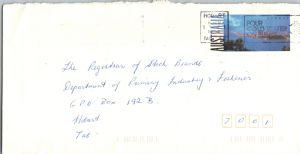 HOBART
AUSTRALIA
The Registrar of Stock Brands
Department of Primary Industry & Fisheries
G P O Box 192 B
Hobart
Tas
7001